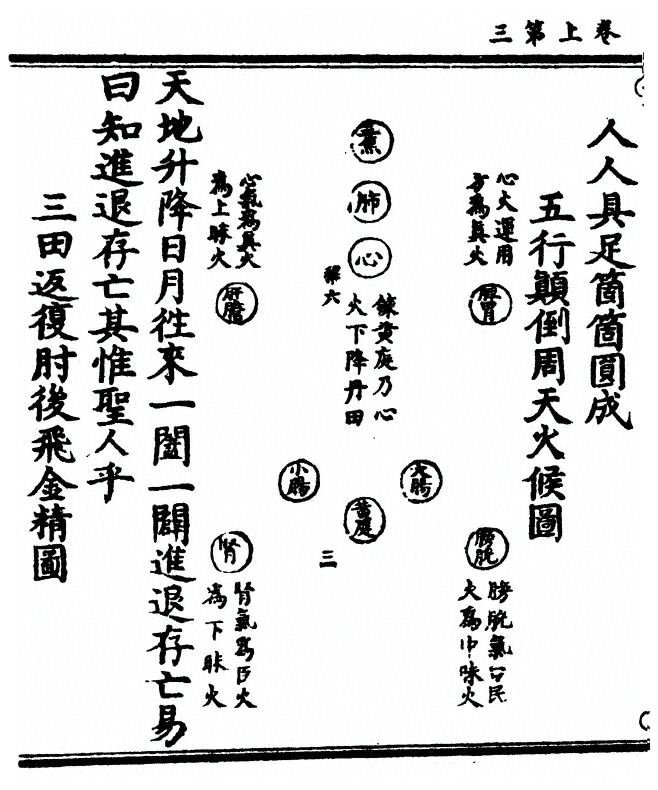 卷上第三
人人具足箇箇圓成
五行顛倒周天火候圖
心火運用
方為真火
脾胃
膀胱
膀胱氣
火為中昧火
肺
心
鍊黃庭乃心
火下降丹田
大腸
黃庭
小腸
第六
三
心氣為真火
為上昧火
肝膽
腎
腎氣為臣火
為下昧火
天地升降日月徃來一闔一闢進退存亡易
曰知進退存亡其惟聖人乎
三田返復肘後飛金精圖